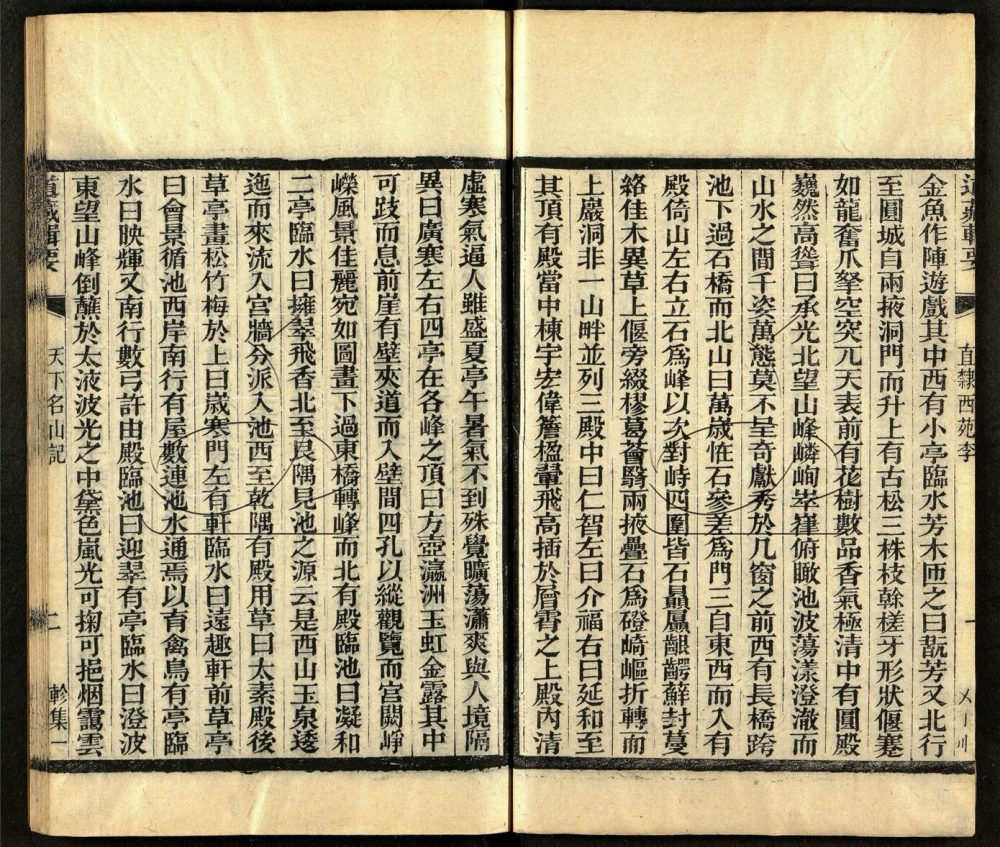 金魚作陣遊戲其中西有小亭臨水芳木匝之曰翫芳又北行
至圓城自兩掖洞門而升上有古松三株枝榦槎牙形狀偃蹇
如龍奮爪拏空突兀天表前有花樹數品香氣極清中有圓殿
巍然高聳曰承光北望山峰嶙峋崒嵂俯瞰池波蕩漾澄澈而
山水之間千姿萬態莫不呈奇獻秀於几窗之前西有長橋跨
池下過石橋而北山曰萬歲恠石參差為門三自東西而入有
殿倚山左右立石為峰以次對峙四圍皆石贔屭齦齶蘚封蔓
絡佳木異草上偃旁綴樛葛薈翳兩掖疊石為磴崎嶇折轉而
上巖洞非一山畔並列三殿中曰仁智左曰介福右曰延和至
其頂有殿當中棟宇宏偉簷楹翬飛高插於層霄之上殿內清
虛寒氣逼人雖盛夏亭午暑氣不到殊覺曠蕩瀟爽與人境隔
異曰廣寒左右四亭在各峰之頂曰方壺瀛洲玉虹金露其中
可跂而息前崖有壁夾道而入壁間四孔以縱觀覽而宮闕崢
嶸風景佳麗宛如圖畫下過東橋轉峰而北有殿臨池曰凝和
二亭臨水曰擁翠飛香北至艮隅見池之源云是西山玉泉逶
迤而來流入宮牆分派入池西至乾隅有殿用草曰太素殿後
草亭畫松竹梅於上曰歲寒門左有軒臨水曰遠趣軒前草亭
曰會景循池西岸南行有屋數連池水通焉以育禽鳥有亭臨
水曰映輝又南行數弓許由殿臨池曰迎翠有亭臨水曰澄波
東望山峰倒蘸於太液波光之中黛色嵐光可掬可挹烟靄雲
道藏輯要
直隸西苑李
一
道藏輯要
天下名山記
二
軫集一